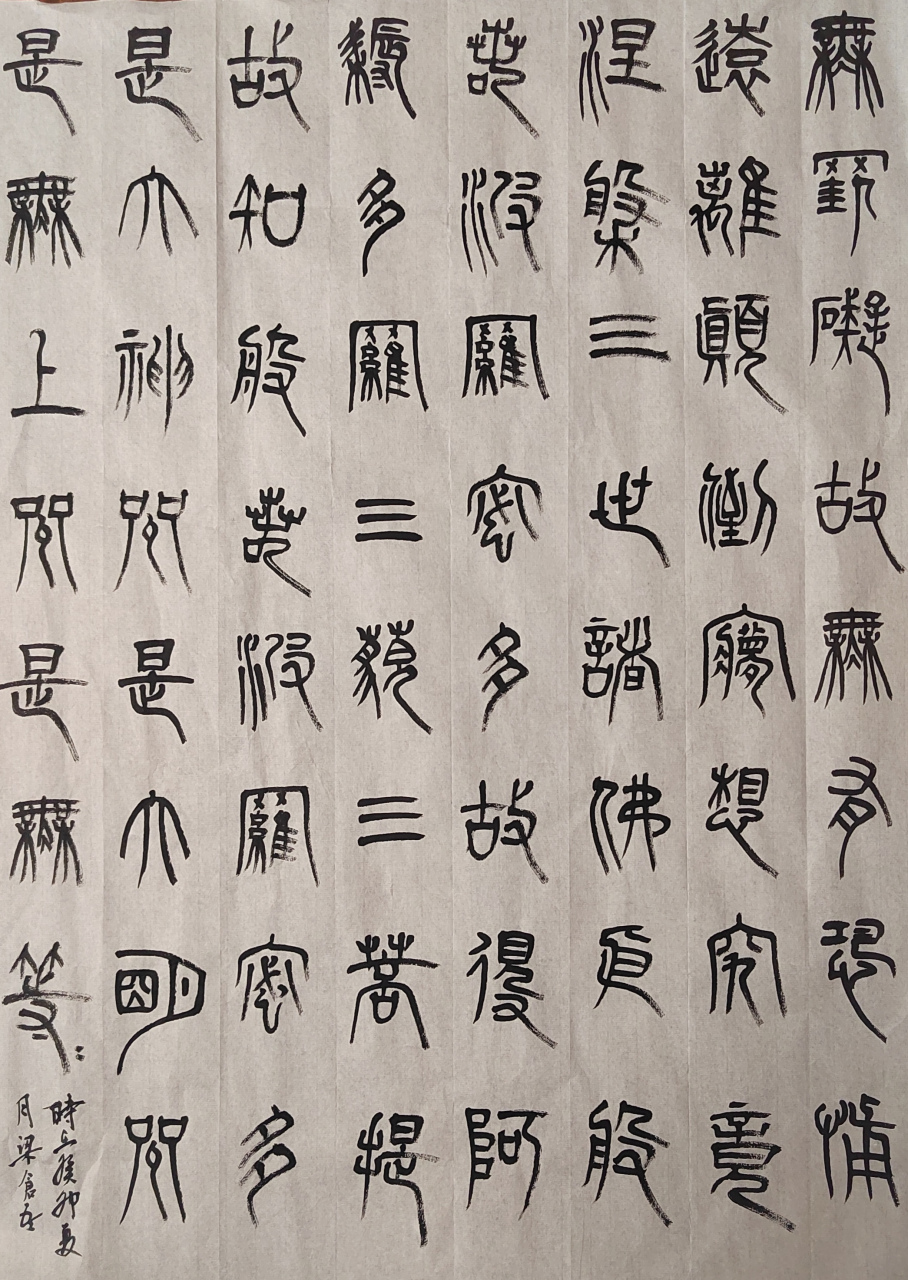 無罣礙故無有恐怖
遠離顛倒夢想究竟
涅槃三世諸佛㠯般
若波羅密多故得阿
耨多羅三藐三菩提
故知般若波羅密多
是大神咒是大明咒
是無上咒是無等二
時在癸卯夏
月梁倉